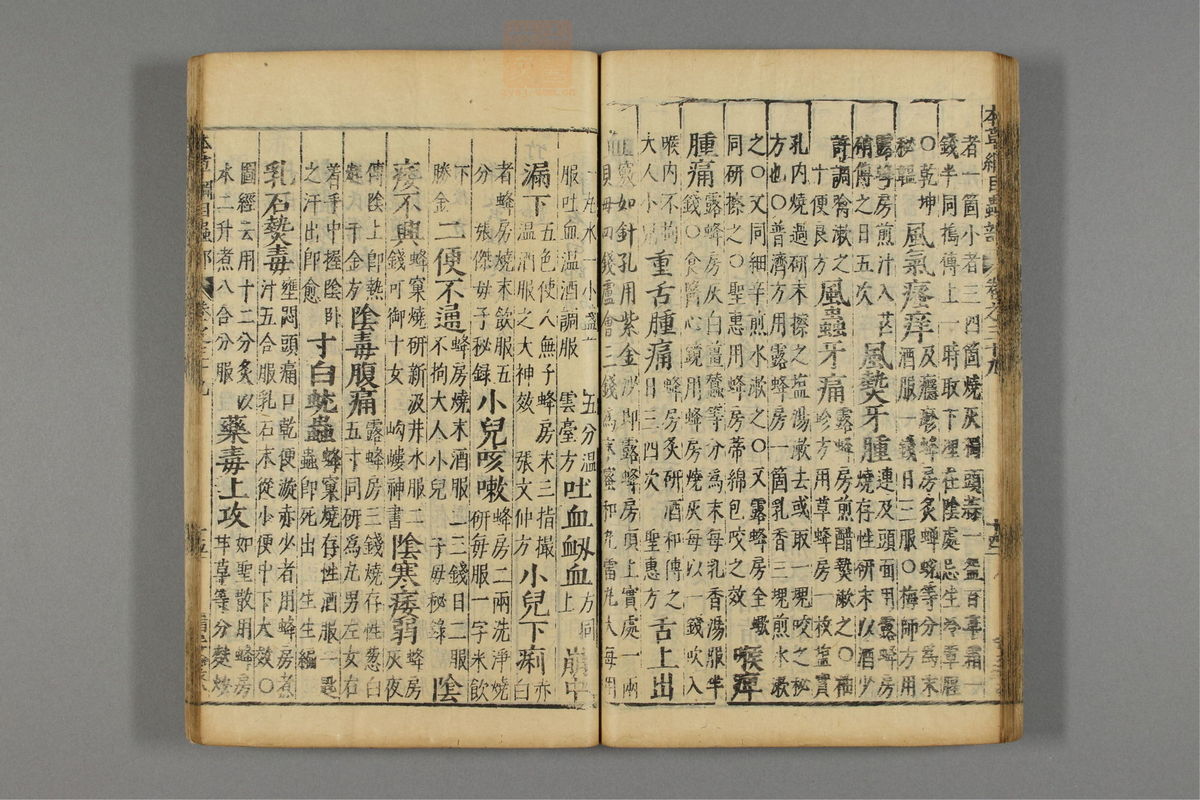 本草綱目蟲部 卷之三十九
者一箇小者三四箇燒灰獨頭蒜一盌百草霜一
錢半同搗傅上一時取下埋在陰處忌生冷葷腥
○乾坤秘韞 風氣瘙痒 及癮疹蜂房炙蟬蛻等分爲末酒服一錢日三服○梅師方用
露蜂房煎汁入芒硝傅之日五次 風熱牙腫 連及頭面用露蜂房燒存性研末以酒少
許調噙漱之十便良方 風蟲牙痛 露蜂房煎醋熱漱之○袖珍方用草蜂房一枚盐實
孔內燒過研末擦之盐湯漱去或取一塊咬之秘
方也○普濟方用露蜂房一箇乳香三塊煎水漱
之○又同細辛煎水漱之○又露蜂房全蠍同研擦之○聖惠用蜂房蒂綿包咬之效 喉痺
腫痛 露蜂房灰白殭蠶等分爲末每乳香湯服半錢○食醫心鏡用蜂房燒灰每以一錢吹入
喉內不拘大人小兒 重舌腫痛 蜂房炙研酒和傅之日三四次 聖惠方 舌上出
血竅如針孔用紫金沙即露蜂房頂上實處一兩
貝母四錢蘆薈三錢爲末蜜和丸雷丸大每用
一丸水一小盞煎至五分溫服吐血溫酒調服 雲臺方 吐血衂血 方同上 崩中
漏下 五色使人無子蜂房末三指撮溫酒服之大神效 張文仲方 小兒下痢 赤白
者蜂房燒末飲服五分 張傑母子秘録 小兒咳嗽 蜂房二兩洗淨燒研每服一字米飲
下勝金 二便不通 蜂房燒末酒服二三錢日二服不拘大人小兒 子母秘録 陰
痿不興 蜂窠燒研新汲井水服二錢可御十女 岣嶁神書 陰寒痿弱 蜂房灰夜
傅陰上即熱起千金方 陰毒腹痛 露蜂房三錢燒存性葱白五寸同研爲丸男左女右
着手中握陰臥之汗出即愈 寸白蚘蟲 蜂窠燒存性酒服一匙蟲即死出 生生編
乳石熱毒 壅悶頭痛口乾便漩赤少者用蜂房煮汁五合服乳石末從小便中下大效○
圖經云用十二分炙以水二升煮八合分服 藥毒上攻 如聖散用蜂房甘草等分麩炒
本草綱目蟲部 卷之三十九